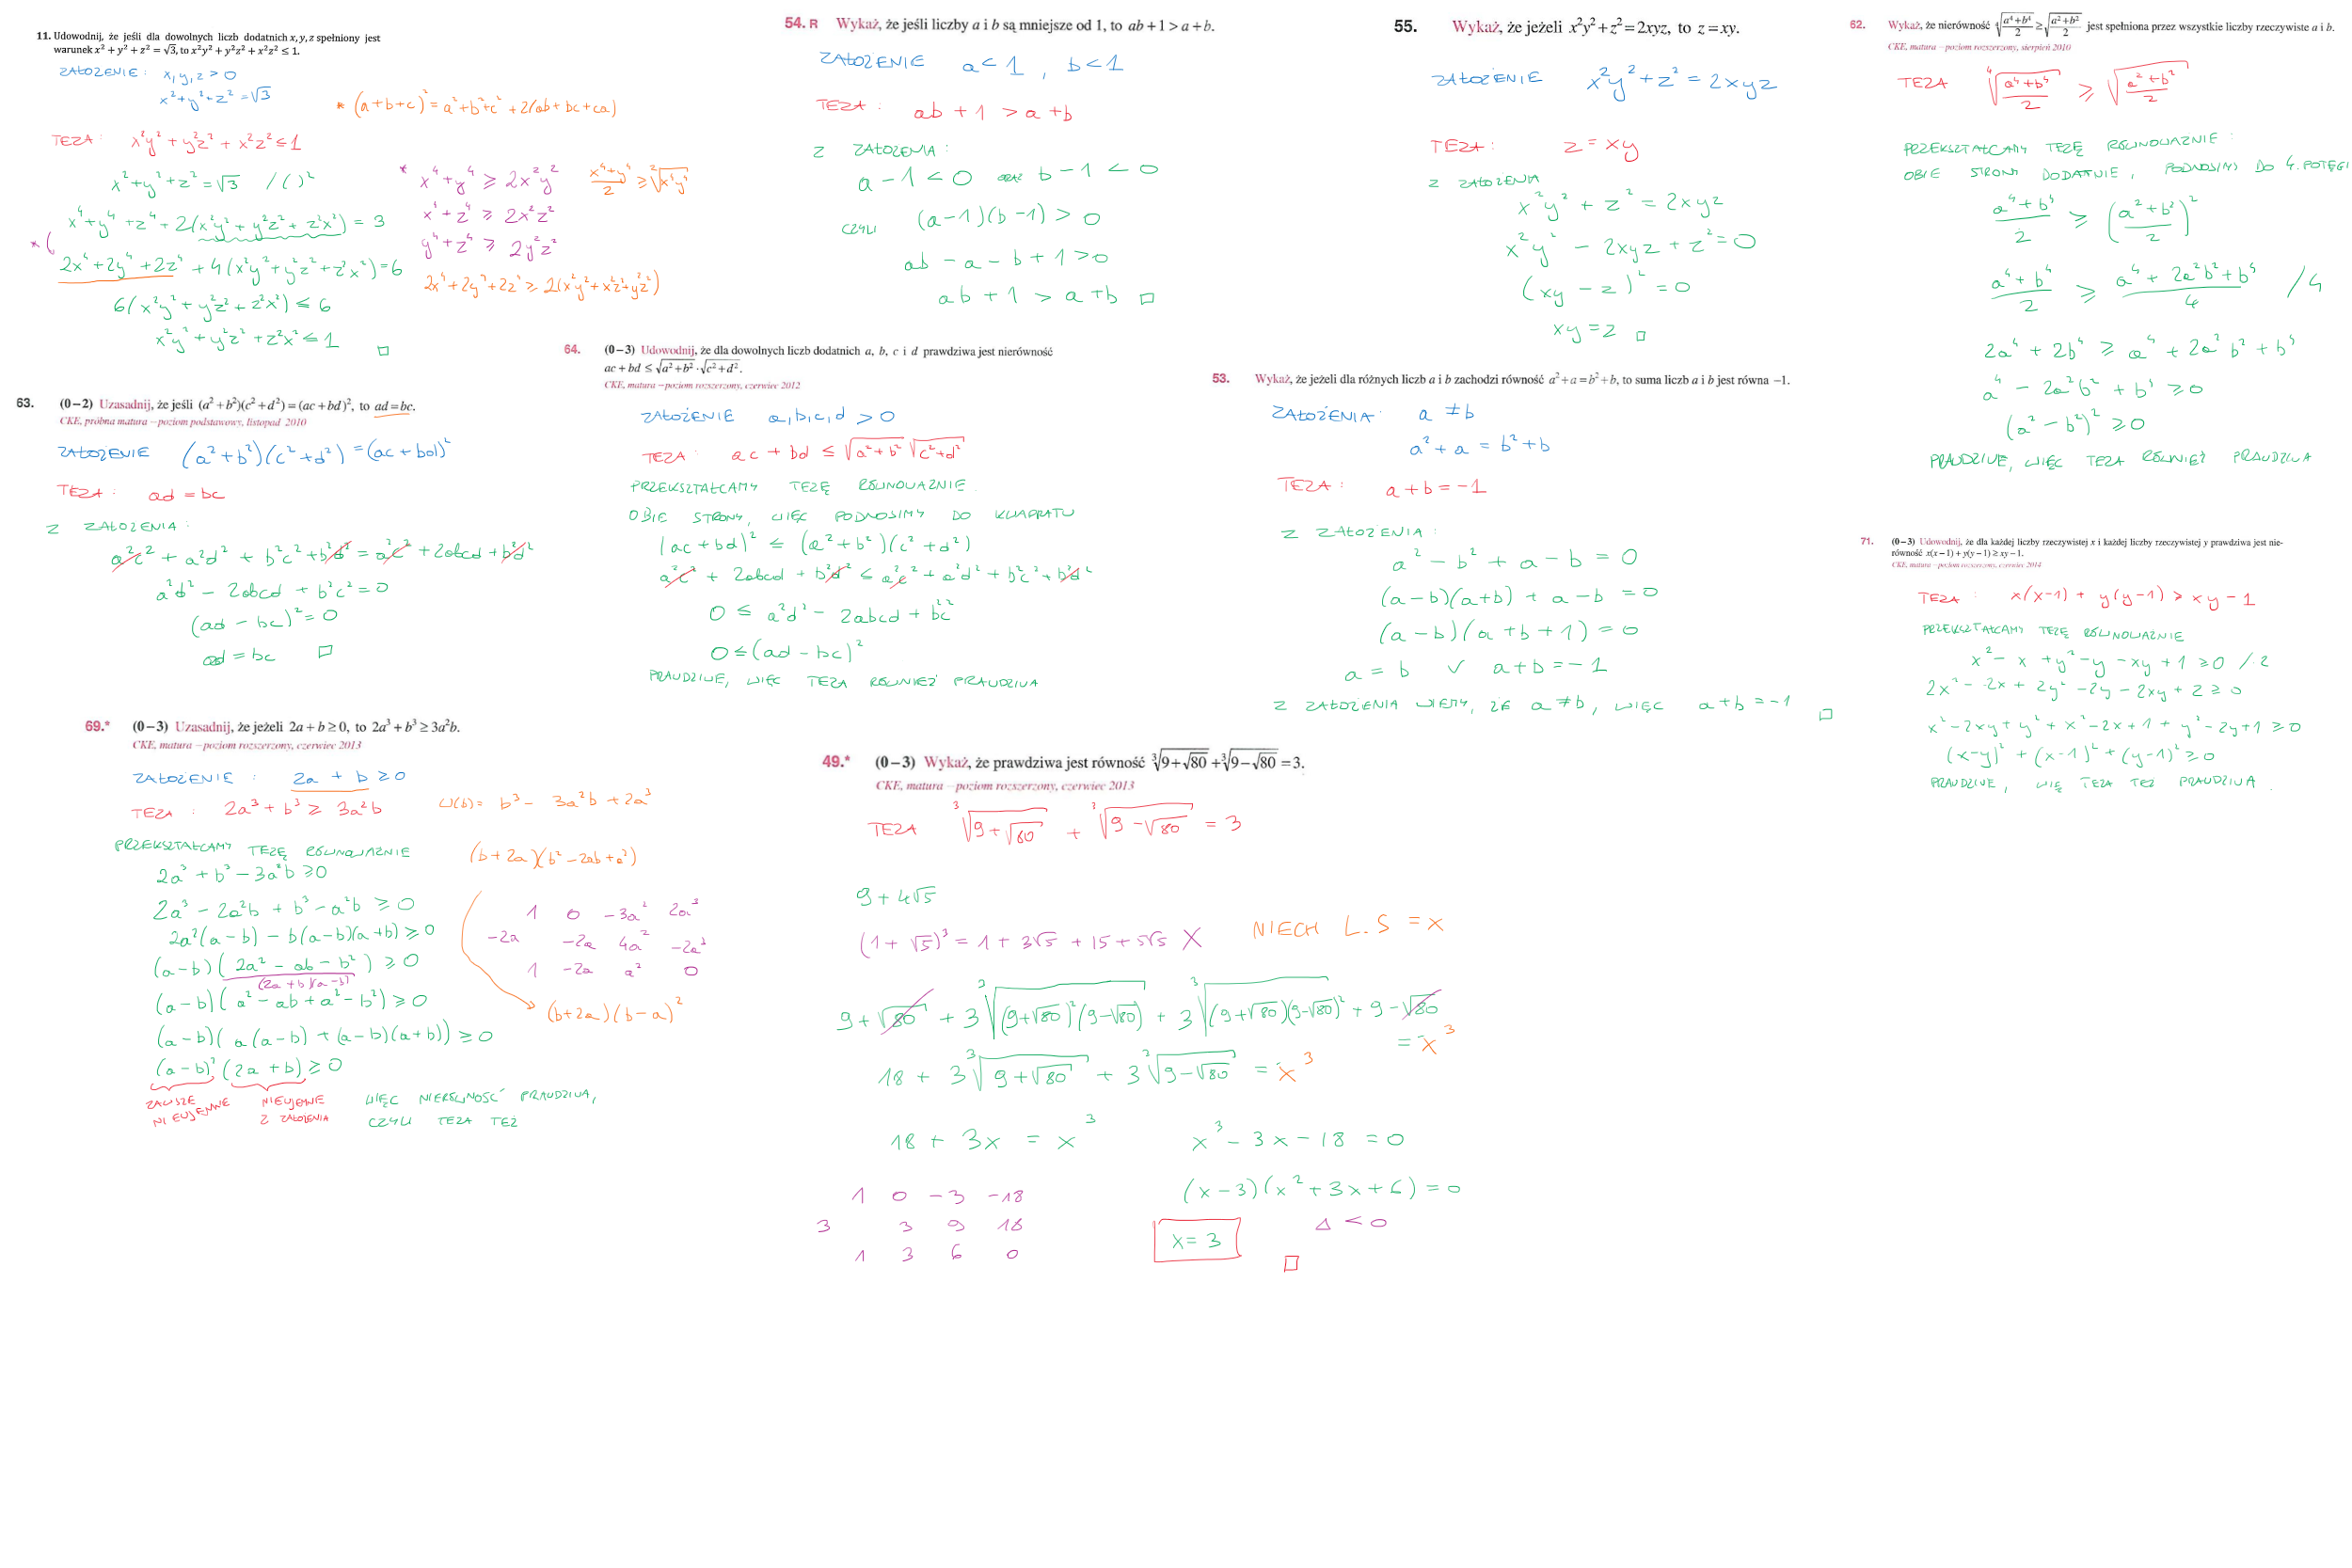 11. Udowodnij, że jeśli dla dowolnych liczb dodatnich x, y, z spełniony jest
warunek x² + y² + z² = √3, to x²y² + y²z² + x²z² ≤ 1.
ZAŁOŻENIE: x, y, z > 0
x² + y² + z² = √3
* (a+b+c)² = a²+b²+c² + 2(ab+bc+ca)
TEZA: x²y² + y²z² + x²z² ≤ 1
x² + y² + z² = √3 /()²
x⁴ + y⁴ + z⁴ + 2(x²y² + y²z² + z²x²) = 3
* (
2x⁴ + 2y⁴ + 2z⁴ + 4(x²y² + y²z² + z²x²) = 6
6(x²y² + y²z² + z²x²) ≤ 6
x²y² + y²z² + z²x² ≤ 1 □
* x⁴ + y⁴ ≥ 2x²y²
x⁴ + z⁴ ≥ 2x²z²
y⁴ + z⁴ ≥ 2y²z²
(x⁴+y⁴)/2 ≥ ²√(x⁴y⁴)
2x⁴ + 2y⁴ + 2z⁴ ≥ 2(x²y² + x²z² + y²z²)
54. R Wykaż, że jeśli liczby a i b są mniejsze od 1, to ab + 1 > a + b.
ZAŁOŻENIE a < 1 , b < 1
TEZA: ab + 1 > a + b
Z ZAŁOŻENIA:
a − 1 < 0 oraz b − 1 < 0
CZYLI (a−1)(b−1) > 0
ab − a − b + 1 > 0
ab + 1 > a + b □
55. Wykaż, że jeżeli x²y² + z² = 2xyz, to z = xy.
ZAŁOŻENIE x²y² + z² = 2xyz
TEZA: z = xy
Z ZAŁOŻENIA
x²y² + z² = 2xyz
x²y² − 2xyz + z² = 0
(xy − z)² = 0
xy = z □
62. Wykaż, że nierówność ⁴√((a⁴+b⁴)/2) ≥ √((a²+b²)/2) jest spełniona przez wszystkie liczby rzeczywiste a i b.
CKE, matura – poziom rozszerzony, sierpień 2010
TEZA ⁴√((a⁴+b⁴)/2) ≥ √((a²+b²)/2)
PRZEKSZTAŁCAMY TEZĘ RÓWNOWAŻNIE:
OBIE STRONY DODATNIE, PODNOSIMY DO 4. POTĘGI
(a⁴+b⁴)/2 ≥ ((a²+b²)/2)²
(a⁴+b⁴)/2 ≥ (a⁴ + 2a²b² + b⁴)/4 /4
2a⁴ + 2b⁴ ≥ a⁴ + 2a²b² + b⁴
a⁴ − 2a²b² + b⁴ ≥ 0
(a² − b²)² ≥ 0
PRAWDZIWE, WIĘC TEZA RÓWNIEŻ PRAWDZIWA
63. (0–2) Uzasadnij, że jeśli (a² + b²)(c² + d²) = (ac + bd)², to ad = bc.
CKE, próbna matura – poziom podstawowy, listopad 2010
ZAŁOŻENIE (a²+b²)(c²+d²) = (ac+bd)²
TEZA: ad = bc
Z ZAŁOŻENIA:
a²c² + a²d² + b²c² + b²d² = a²c² + 2abcd + b²d²
a²d² − 2abcd + b²c² = 0
(ad − bc)² = 0
ad = bc □
64. (0–3) Udowodnij, że dla dowolnych liczb dodatnich a, b, c i d prawdziwa jest nierówność
ac + bd ≤ √(a²+b²) · √(c²+d²).
CKE, matura – poziom rozszerzony, czerwiec 2012
ZAŁOŻENIE a, b, c, d > 0
TEZA: ac + bd ≤ √(a²+b²) √(c²+d²)
PRZEKSZTAŁCAMY TEZĘ RÓWNOWAŻNIE.
OBIE STRONY, WIĘC PODNOSIMY DO KWADRATU
(ac + bd)² ≤ (a²+b²)(c²+d²)
a²c² + 2abcd + b²d² ≤ a²c² + a²d² + b²c² + b²d²
0 ≤ a²d² − 2abcd + b²c²
0 ≤ (ad − bc)²
PRAWDZIWE, WIĘC TEZA RÓWNIEŻ PRAWDZIWA
53. Wykaż, że jeżeli dla różnych liczb a i b zachodzi równość a² + a = b² + b, to suma liczb a i b jest równa −1.
ZAŁOŻENIA: a ≠ b
a² + a = b² + b
TEZA: a + b = −1
Z ZAŁOŻENIA:
a² − b² + a − b = 0
(a−b)(a+b) + a − b = 0
(a−b)(a+b+1) = 0
a = b ∨ a + b = −1
Z ZAŁOŻENIA WIEMY, ŻE a ≠ b, WIĘC a + b = −1 □
71. (0–3) Udowodnij, że dla każdej liczby rzeczywistej x i każdej liczby rzeczywistej y prawdziwa jest nie-
równość x(x−1) + y(y−1) ≥ xy − 1.
CKE, matura – poziom rozszerzony, czerwiec 2014
TEZA: x(x−1) + y(y−1) ≥ xy − 1
PRZEKSZTAŁCAMY TEZĘ RÓWNOWAŻNIE
x² − x + y² − y − xy + 1 ≥ 0 /·2
2x² − 2x + 2y² − 2y − 2xy + 2 ≥ 0
x² − 2xy + y² + x² − 2x + 1 + y² − 2y + 1 ≥ 0
(x−y)² + (x−1)² + (y−1)² ≥ 0
PRAWDZIWE, WIĘ TEZA TEŻ PRAWDZIWA.
69.* (0–3) Uzasadnij, że jeżeli 2a + b ≥ 0, to 2a³ + b³ ≥ 3a²b.
CKE, matura – poziom rozszerzony, czerwiec 2013
ZAŁOŻENIE: 2a + b ≥ 0
TEZA: 2a³ + b³ ≥ 3a²b
W(b) = b³ − 3a²b + 2a³
PRZEKSZTAŁCAMY TEZĘ RÓWNOWAŻNIE
2a³ + b³ − 3a²b ≥ 0
2a³ − 2a²b + b³ − a²b ≥ 0
2a²(a−b) − b(a−b)(a+b) ≥ 0
(a−b)(2a² − ab − b²) ≥ 0
(2a+b)(a−b)
(a−b)(a² − ab + a² − b²) ≥ 0
(a−b)(a(a−b) + (a−b)(a+b)) ≥ 0
(a−b)²(2a+b) ≥ 0
ZAWSZE NIEUJEMNE
NIEUJEMNE Z ZAŁOŻENIA
WIĘC NIERÓWNOŚĆ PRAWDZIWA,
CZYLI TEZA TEŻ
(b+2a)(b² − 2ab + a²)
1 0 −3a² 2a³
−2a −2a 4a² −2a³
1 −2a a² 0
(b+2a)(b−a)²
49.* (0–3) Wykaż, że prawdziwa jest równość ³√(9+√80) + ³√(9−√80) = 3.
CKE, matura – poziom rozszerzony, czerwiec 2013
TEZA ³√(9+√80) + ³√(9−√80) = 3
9 + 4√5
(1+√5)³ = 1 + 3√5 + 15 + 5√5 X
NIECH L.S = x
9 + √80 + 3 ³√((9+√80)²(9−√80)) + 3 ³√((9+√80)(9−√80)²) + 9 − √80
= x³
18 + 3 ³√(9+√80) + 3 ³√(9−√80) = x³
18 + 3x = x³
x³ − 3x − 18 = 0
(x−3)(x² + 3x + 6) = 0
1 0 −3 −18
3 3 9 18
1 3 6 0
Δ < 0
x = 3
□